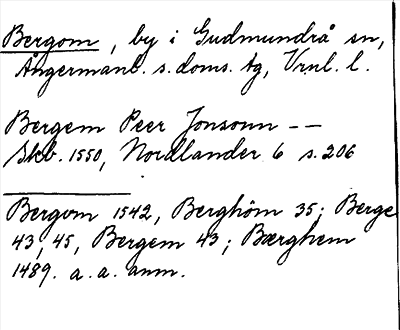 Bergom, by i Gudmundrå sn,
Ångermanl. s. doms. tg, Vrnl. l.
Bergem Peer Jonsonn --
Skb. 1550, Nordlander 6 s. 206
Bergom 1542, Berghöm 35; Berge
43, 45, Bergem 43; Bærghem
1489. a. a. anm.